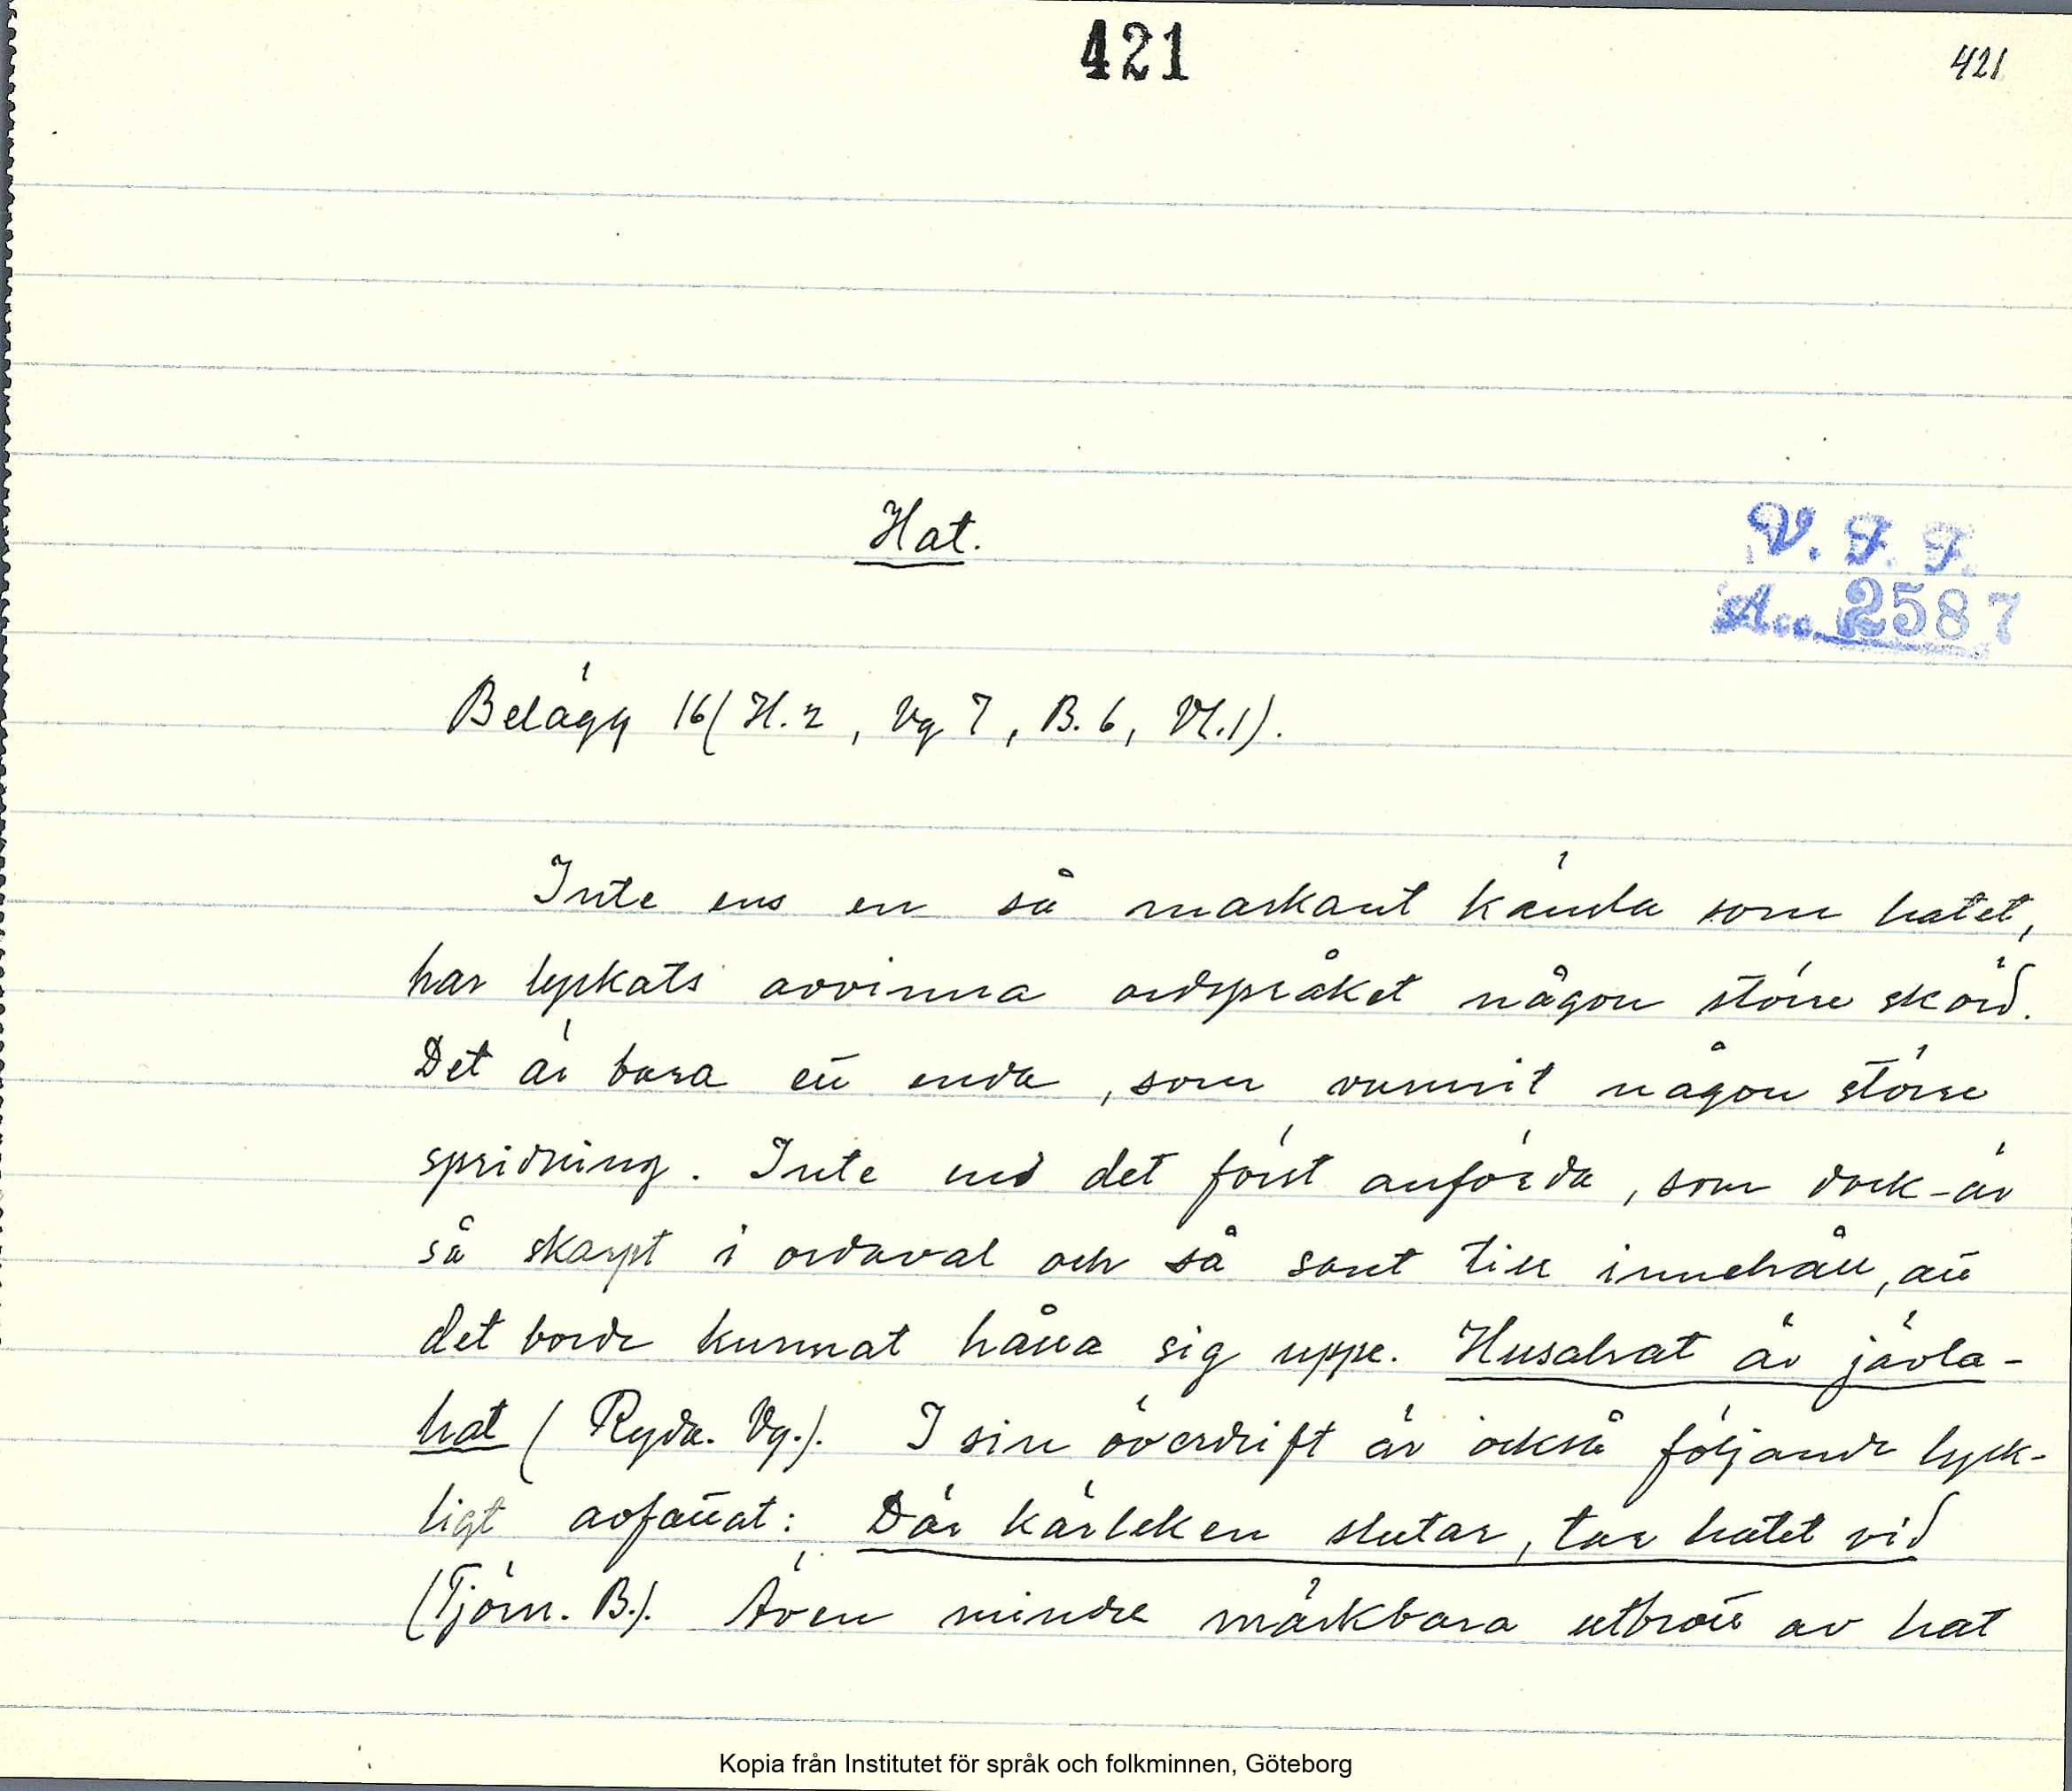 421
421
Hat.
V. F. F.
Acc. 2587
Belägg 16 (H. 2, Vg 7, B. 6, Vl. 1).
Inte ens en så markant känsla som hatet,
har lyckats avvinna ordspråket någon större skörd.
Det är bara ett enda, som vunnit någon större
spridning. Inte ens det först anförda, som dock är
så skarpt i ordaval och så sant till innehåll, att
det borde kunnat hålla sig uppe. Husahat är jävla-
hat (Ryda. Vg.). I sin överdrift är också följande lyck-
ligt avfattat: Där kärleken slutar, tar hatet vid
(Tjörn. B.). Även mindre märkbara utbrott av hat
Kopia från Institutet för språk och folkminnen, Göteborg